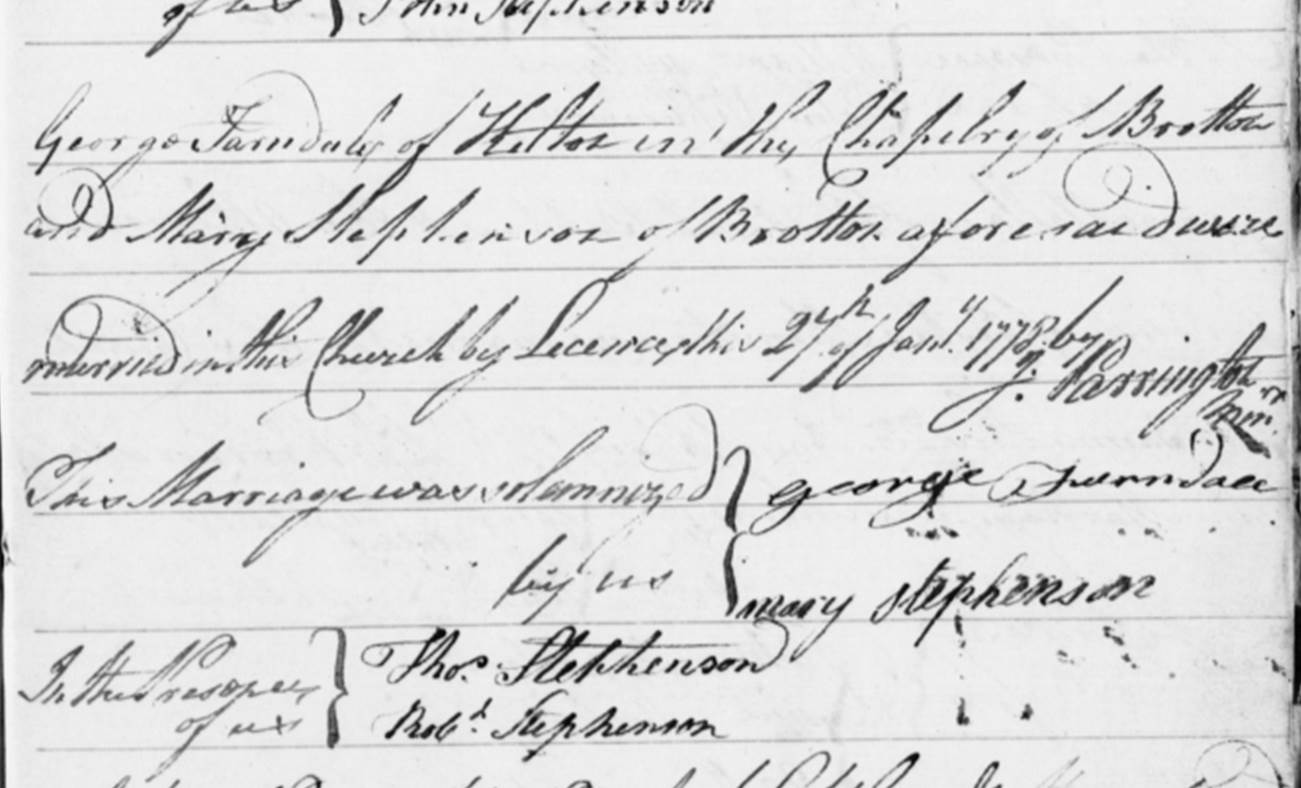 of us } John Stephenson
George Farndale of Kilton in the Chapelry of Brotton
and Mary Stephenson of Brotton aforesaid were
married in this Church by Licence this 27th of Jany. 1778 by
J. Parrington
Minr.
This Marriage was solemnized } george Fwrndale
by us { mary Stephenson
In the Presence } Thos. Stephenson
of us } Robt. Stephenson